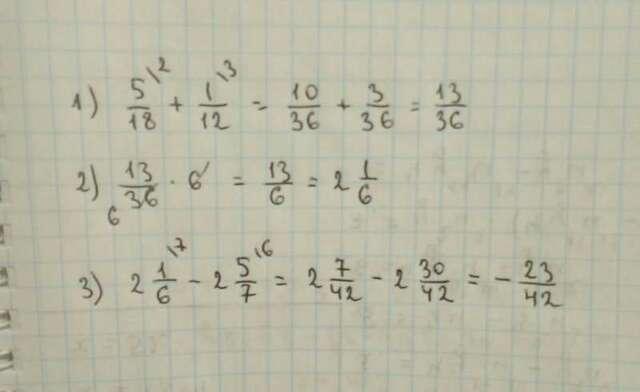 1) 5\2/18 + 1\3/12 = 10/36 + 3/36 = 13/36
2) 13/36 6 · 6' = 13/6 = 2 1/6
3) 2 1\7/6 - 2 5\6/7 = 2 7/42 - 2 30/42 = - 23/42